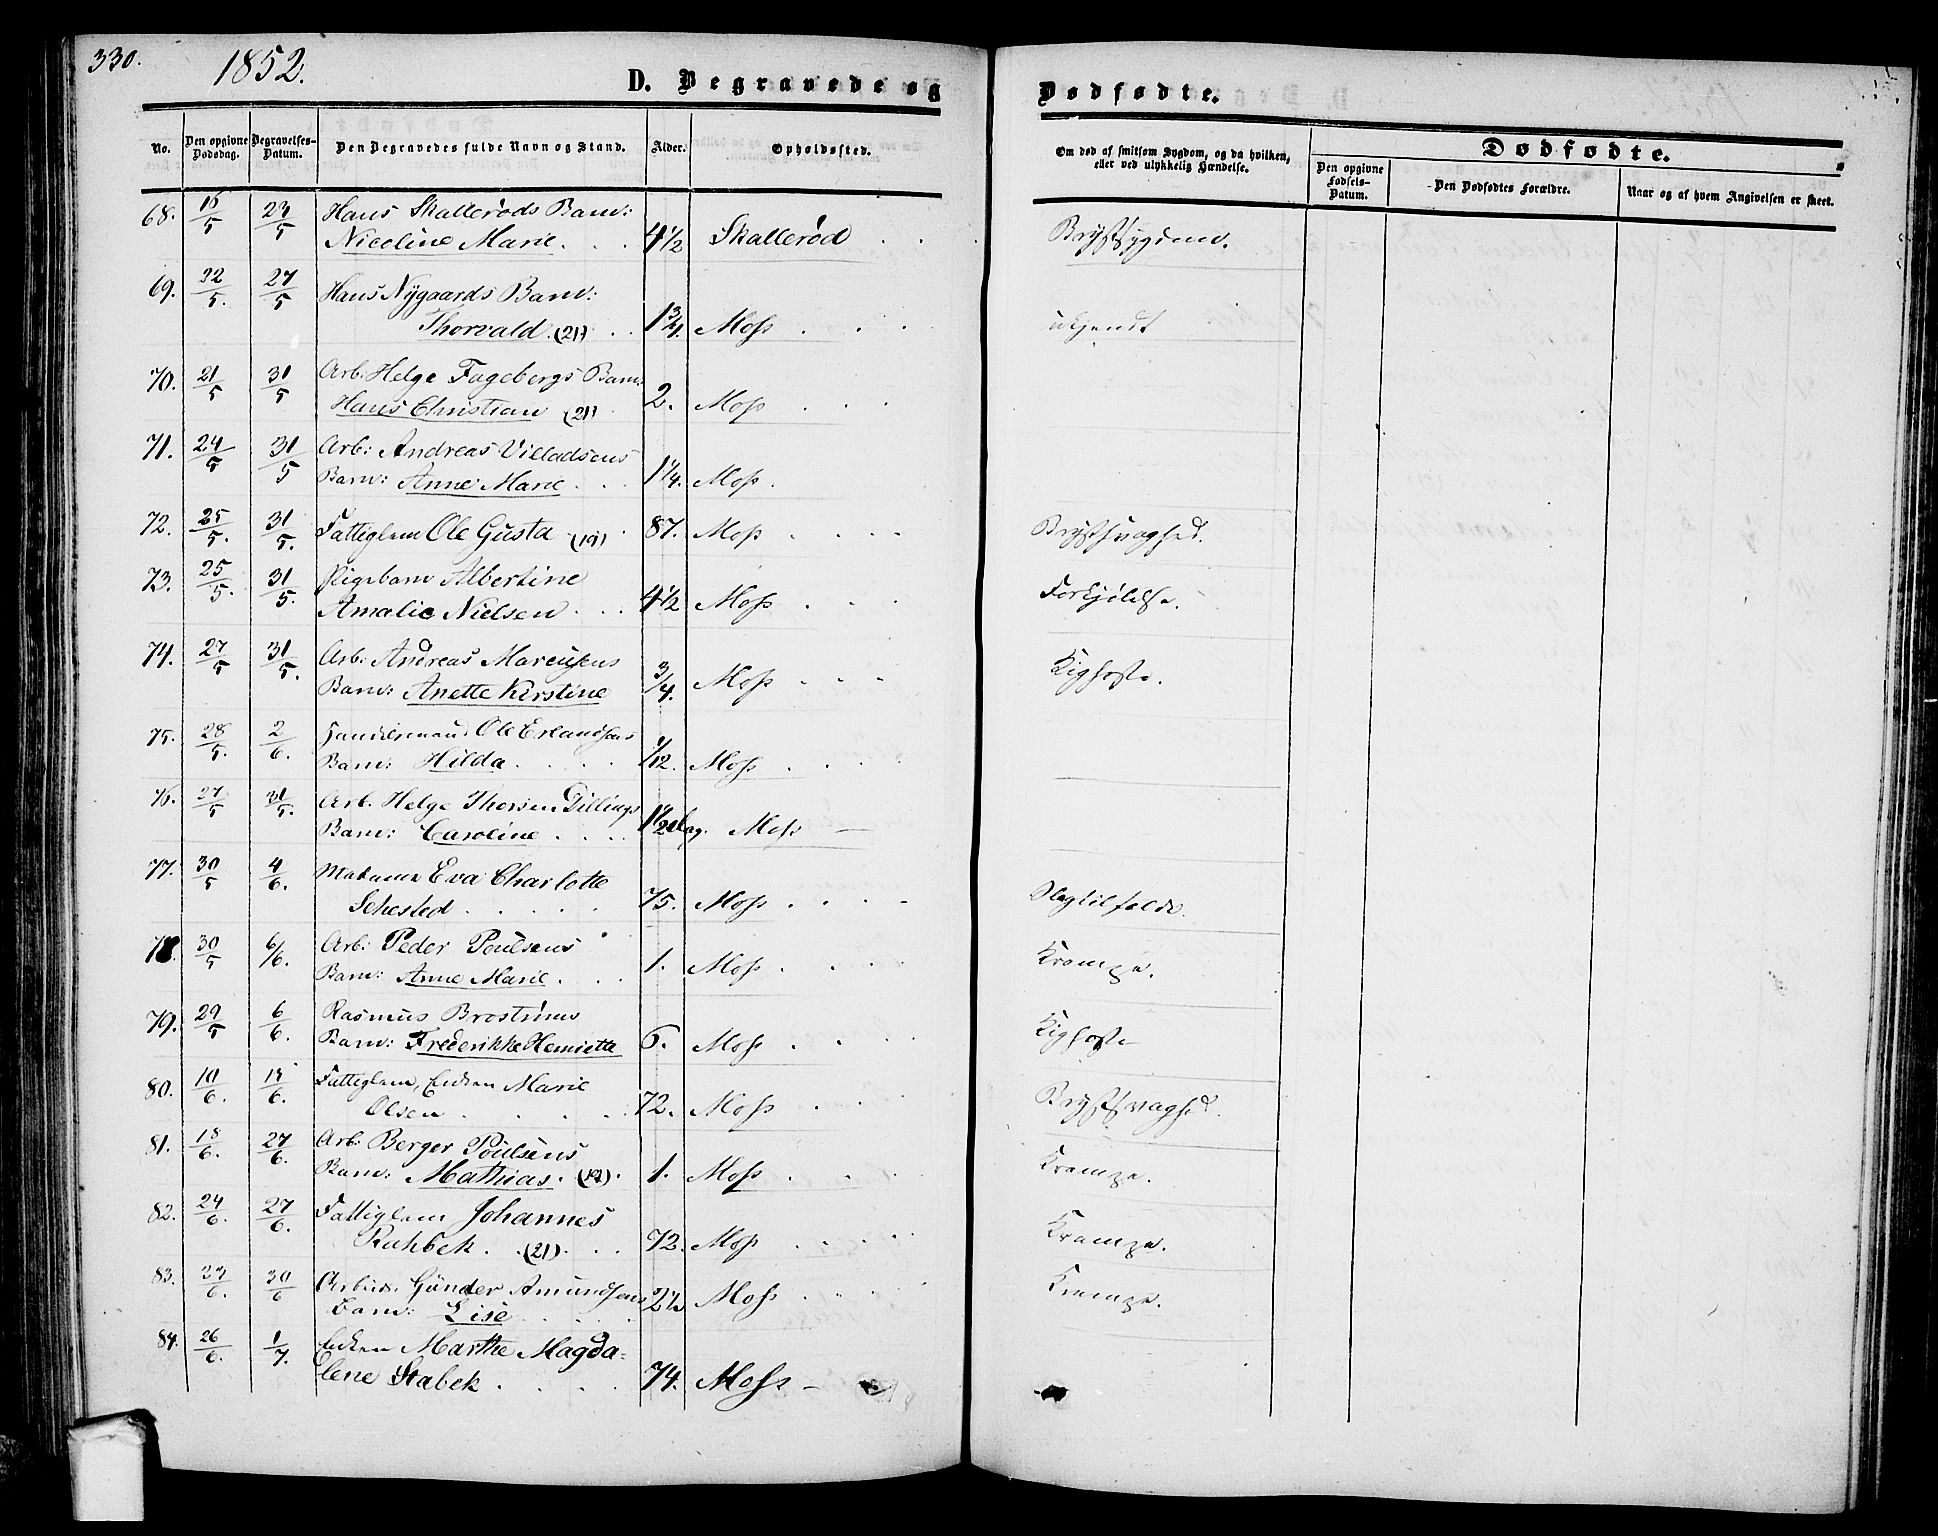 330.
1852.
D. Begravede og
Dødfødte.
No. Den opgivne Dødsdag. Begravelses-Datum. Den Begravedes fulde Navn og Stand. Alder. Opholdssted.
Om død af smitsom Sygdom, og da hvilken, eller ved ulykkelig Hændelse.
Dødfødte.
Den opgivne Fødsels-Datum. Den Dødfødtes Forældre. Naar og af hvem Angivelsen er skeet.
68. 16/5 23/5 Hans Skallerøds Barn:
Nicoline Marie. 4 1/2 Skallerød Brystsygdom.
69. 22/5. 27/5 Hans Nygaards Barn:
Thorvald. (21) 1 3/4. Moss ukjendt
70. 21/5 31/5 Arb: Helge Fagebergs Barn:
Hans Christian (21) 2. Moss
71. 24/5 31/5 Arb: Andreas Villadsens
Barn: Anne Marie 1 1/4. Moss.
72. 25/5. 31/5. Fattiglem Ole Gusta (19) 87. Moss Brystsvaghed.
73. 25/5. 31/5. Pigebarn Albertine
Amalie Nielsen 4 1/2 Moss Forkjølelse.
74. 27/5 31/5. Arb: Andreas Marcusens
Barn: Anette Kirstine 3/4. Moss Kighoste.
75. 28/5. 2/6. Handelsmand Ole Erlandsens
Barn: Hilda. 1/12. Moss
76. 27/5 31/5. Arb. Helge Thorsen Dillings
Barn: Caroline 1 1/2 Dag. Moss
77. 30/5 4/6. Madame Eva Charlotte
Sehested 75. Moss Slagtilfælde.
78. 30/5 6/6. Arb: Peder Poulsens
Barn: Anne Marie 1. Moss Krampe.
79. 29/5 6/6. Rasmus Brostrøms
Barn: Frederikke Henriette 6. Moss Kighoste
80. 10/6. 6. Fattiglem, Enken Marie
Olsen 72. Moss Brystsvaghed.
81. 18/6. 27/6. Arb: Berger Poulsens
Barn: Mathias. 1. Moss Krampe.
82. 24/6. 27/6. Fattiglem Johannes
Rahbek. (21) 72. Moss Krampe.
83. 6. 30/6 Arbeids. Gunder Amundsens
Barn: Lise 2 1/2 Moss Krampe.
84. 26/6. 1/7. Enken Marthe Magda-
lene Stabek 74. Moss